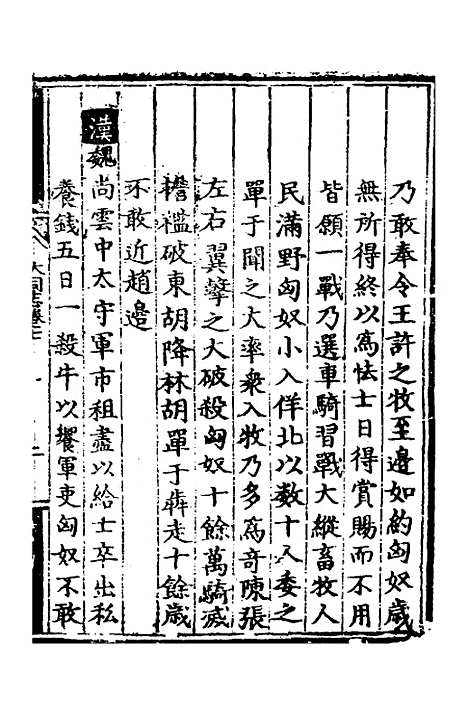 乃敢奉令王許之牧至邉如約匈奴歳
無所得終以爲怯士日得賞賜而不用
皆願一戰乃選車騎習戰大縱畜牧人
民滿野匈奴小入佯北以數十人委之
單于聞之大率衆入牧乃多爲奇陳張
左右翼擊之大破殺匈奴十餘萬騎滅
襜襤破東胡降林胡單于犇走十餘歳
不敢近趙邉
漢魏尚雲中太守軍市租盡以給士卒出私
養錢五日一殺牛以饗軍吏匈奴不敢
大同志卷